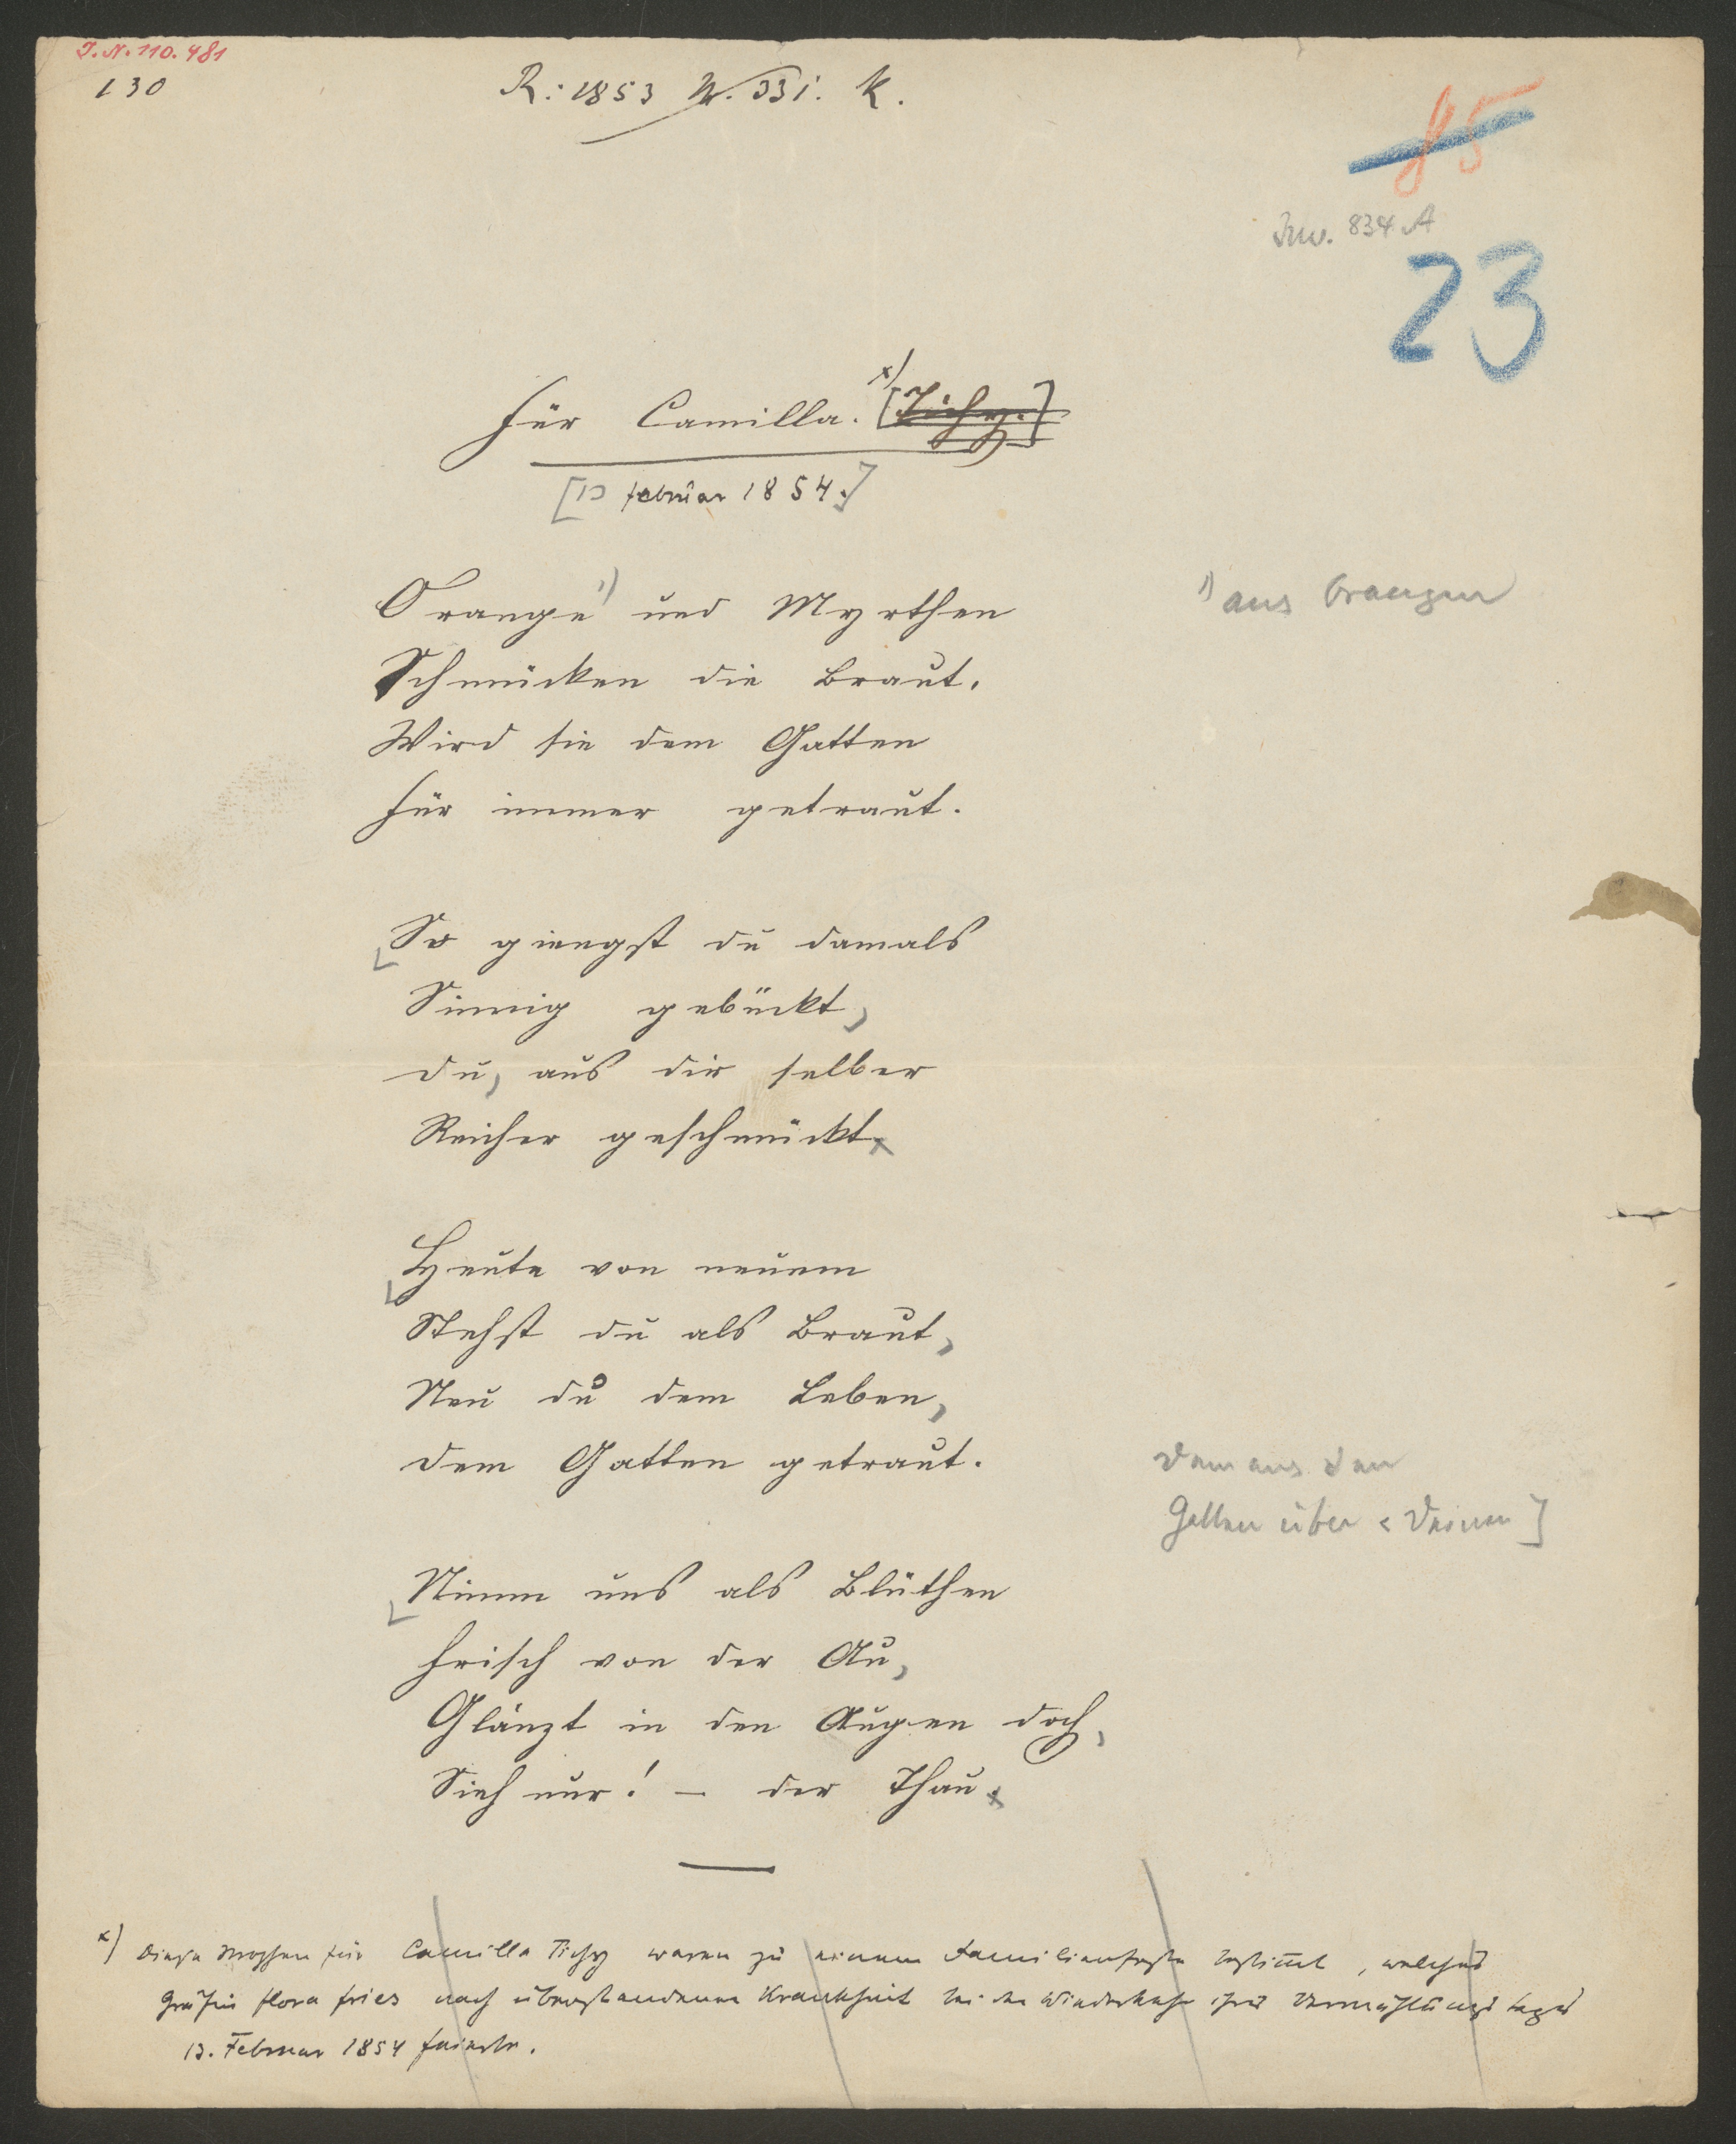 I. N. 110.481
130
R: 1853 N. 331. K.
85
Inv. 834 A
23
Für Camilla. x) [Tichy.]
[13 Februar 1854.]
Orange 1) und Myrthen
Schmücken die Braut,
Wird sie dem Gatten
Für immer getraut.
1) aus Orangen
So giengst du damals
Sinnig gebückt,
Du, aus dir selber
Reicher geschmückt.
Heute von neuem
Stehst du als Braut,
Neu du dem Leben,
Dem Gatten getraut.
Dem aus den
Gatten über < Deinen ]
Nimm uns als Blüthen
Frisch von der Au,
Glänzt in den Augen doch,
Sieh nur! – der Thau.
x) Diese Strophen für Camilla Tichy waren zu einem Familienfeste bestimmt, welches
Gräfin Flora Fries nach überstandener Krankheit bei der Wiederkehr ihres Vermählungstages
13. Februar 1854 feierte.